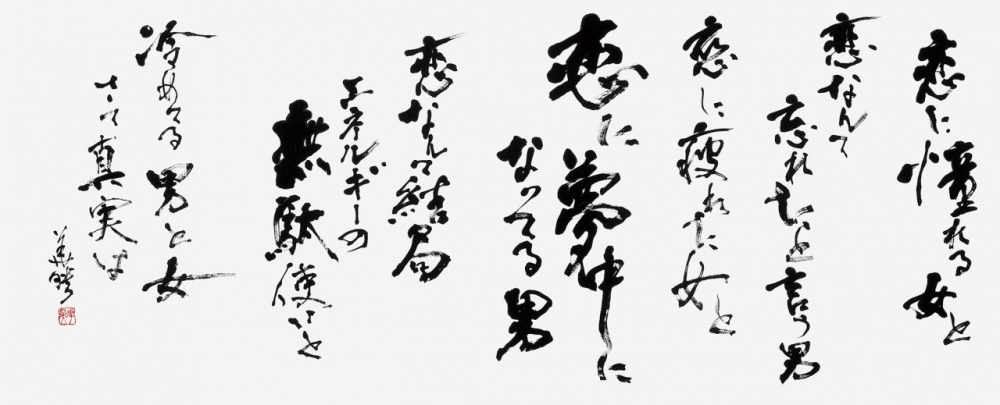 恋に憧れる女と
恋なんて
忘れちまえと言う男
恋に疲れた女と
恋に夢中に
なってる男
恋なんて結局
エネルギーの
無駄使いと
冷めてる男と女
さて真実は